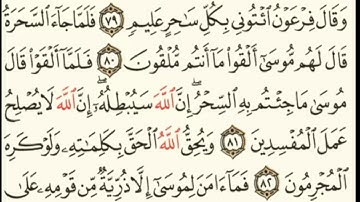 وَقَالَ فِرْعَوْنُ ٱئْتُونِى بِكُلِّ سَٰحِرٍ عَلِيمٍ ٧٩ فَلَمَّا جَآءَ ٱلسَّحَرَةُ
قَالَ لَهُم مُّوسَىٰٓ أَلْقُوا۟ مَآ أَنتُم مُّلْقُونَ ٨٠ فَلَمَّآ أَلْقَوْا۟ قَالَ
مُوسَىٰ مَا جِئْتُم بِهِ ٱلسِّحْرُ ۖ إِنَّ ٱللَّهَ سَيُبْطِلُهُۥٓ ۖ إِنَّ ٱللَّهَ لَا يُصْلِحُ
عَمَلَ ٱلْمُفْسِدِينَ ٨١ وَيُحِقُّ ٱللَّهُ ٱلْحَقَّ بِكَلِمَٰتِهِۦ وَلَوْ كَرِهَ
ٱلْمُجْرِمُونَ ٨٢ فَمَآ ءَامَنَ لِمُوسَىٰٓ إِلَّا ذُرِّيَّةٌ مِّن قَوْمِهِۦ عَلَىٰ